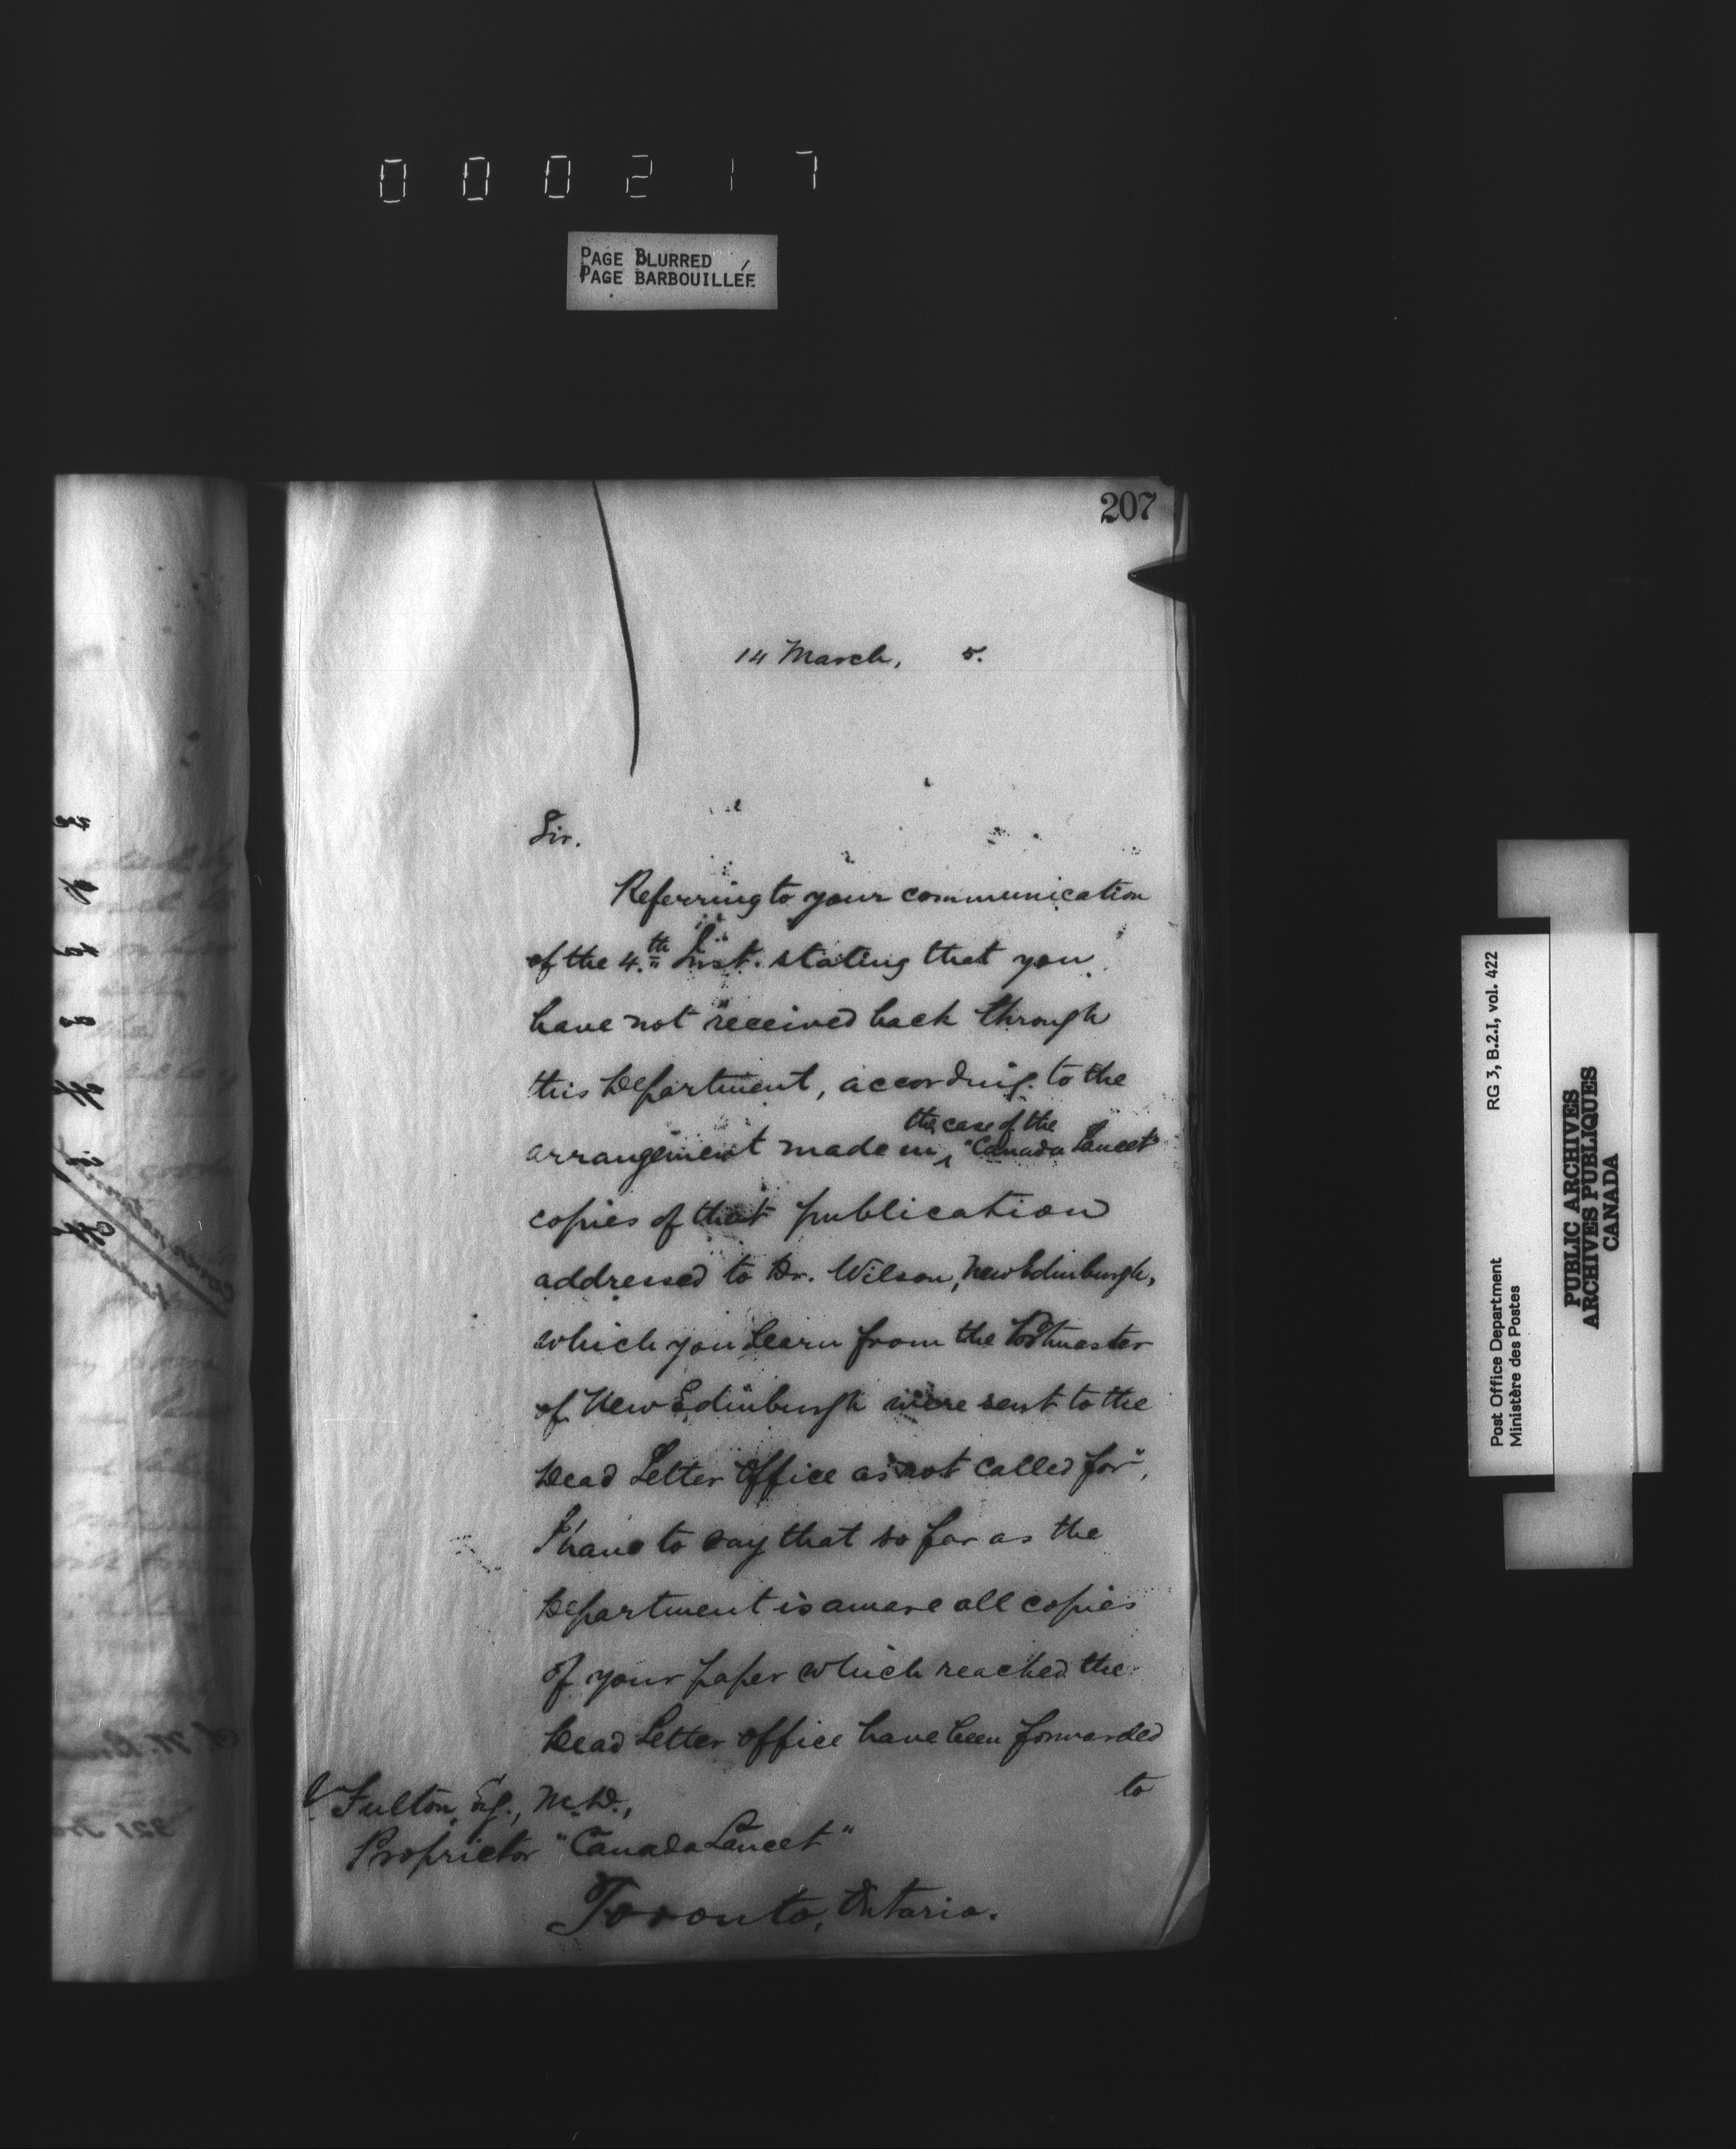 000217
PAGE BLURRED
PAGE BARBOUILLÉE
207
14 March, 5.
Sir.
Referring to your communication
of the 4.th Inst. stating that you
have not received back through
this Department, according to the
arrangement made in ^ the case of the "Canada Lancet"
copies of that publication
addressed to Dr. Wilson, New Edinburgh,
which you learn from the Postmaster
of New Edinburgh were sent to the
Dead Letter Office as "not called for",
I have to say that so far as the
Department is aware all copies
of your paper which reached the
Dead Letter Office have been forwarded
to
J. Fulton, Esq., M.D.,
Proprietor "Canada Lancet"
Toronto, Ontario.
Post Office Department
Ministère des Postes
RG 3, B.2.I, vol. 422
PUBLIC ARCHIVES
ARCHIVES PUBLIQUES
CANADA